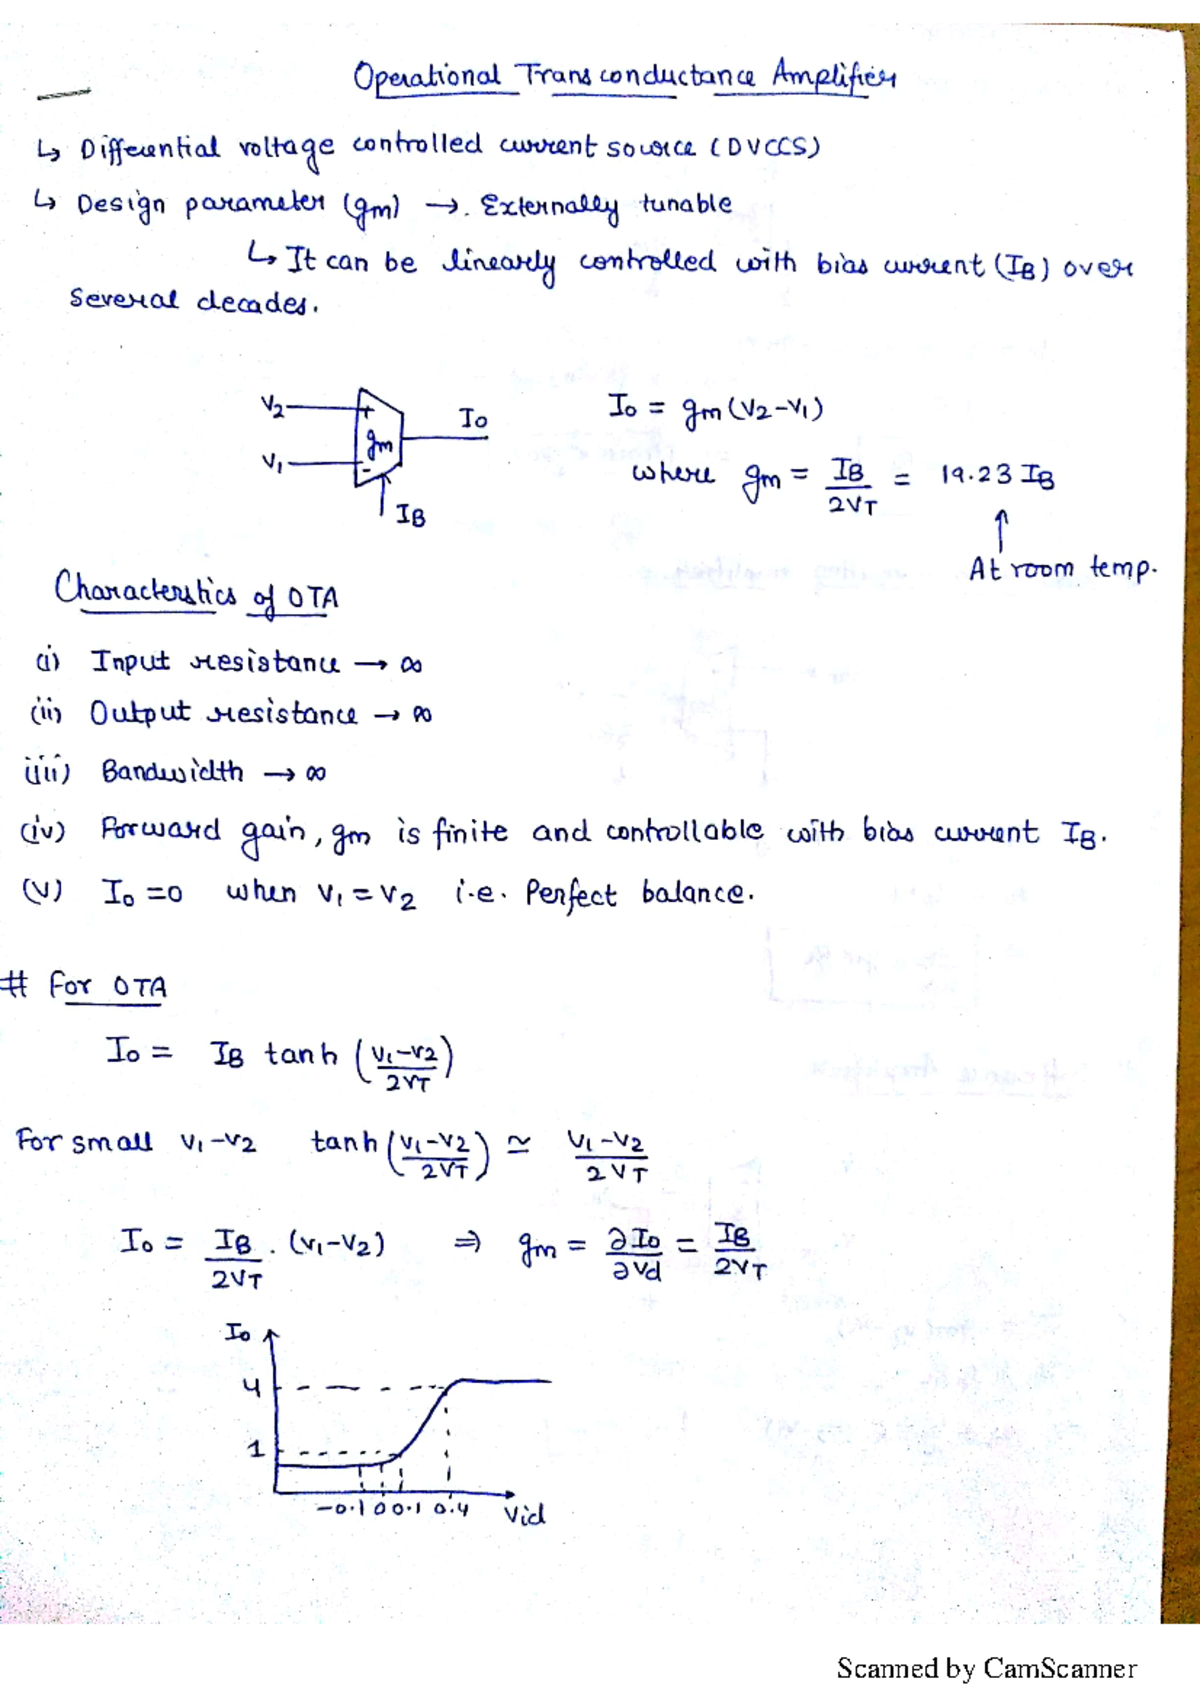 Operational Transconductance Amplifier
↳ Differential voltage controlled current source (DVCCS)
↳ Design parameter (gm) →. Externally tunable
↳ It can be linearly controlled with bias current (IB) over
several decades.
V2 + Io
gm
V1 -
IB
Io = gm (V2-V1)
where gm = IB/2VT = 19.23 IB
↑
At room temp.
Characterstics of OTA
(i) Input resistance → ∞
(ii) Output resistance → ∞
(iii) Bandwidth → ∞
(iv) Forward gain, gm is finite and controllable with bias current IB.
(v) Io =0 when V1 = V2 i.e. Perfect balance.
# For OTA
Io = IB tanh (V1-V2/2VT)
For small V1-V2 tanh (V1-V2/2VT) ≃ V1-V2/2VT
Io = IB/2VT . (V1-V2) ⇒ gm = ∂Io/∂Vd = IB/2VT
Io
4
1
-0.1 0 0.1 0.4 Vid
Scanned by CamScanner